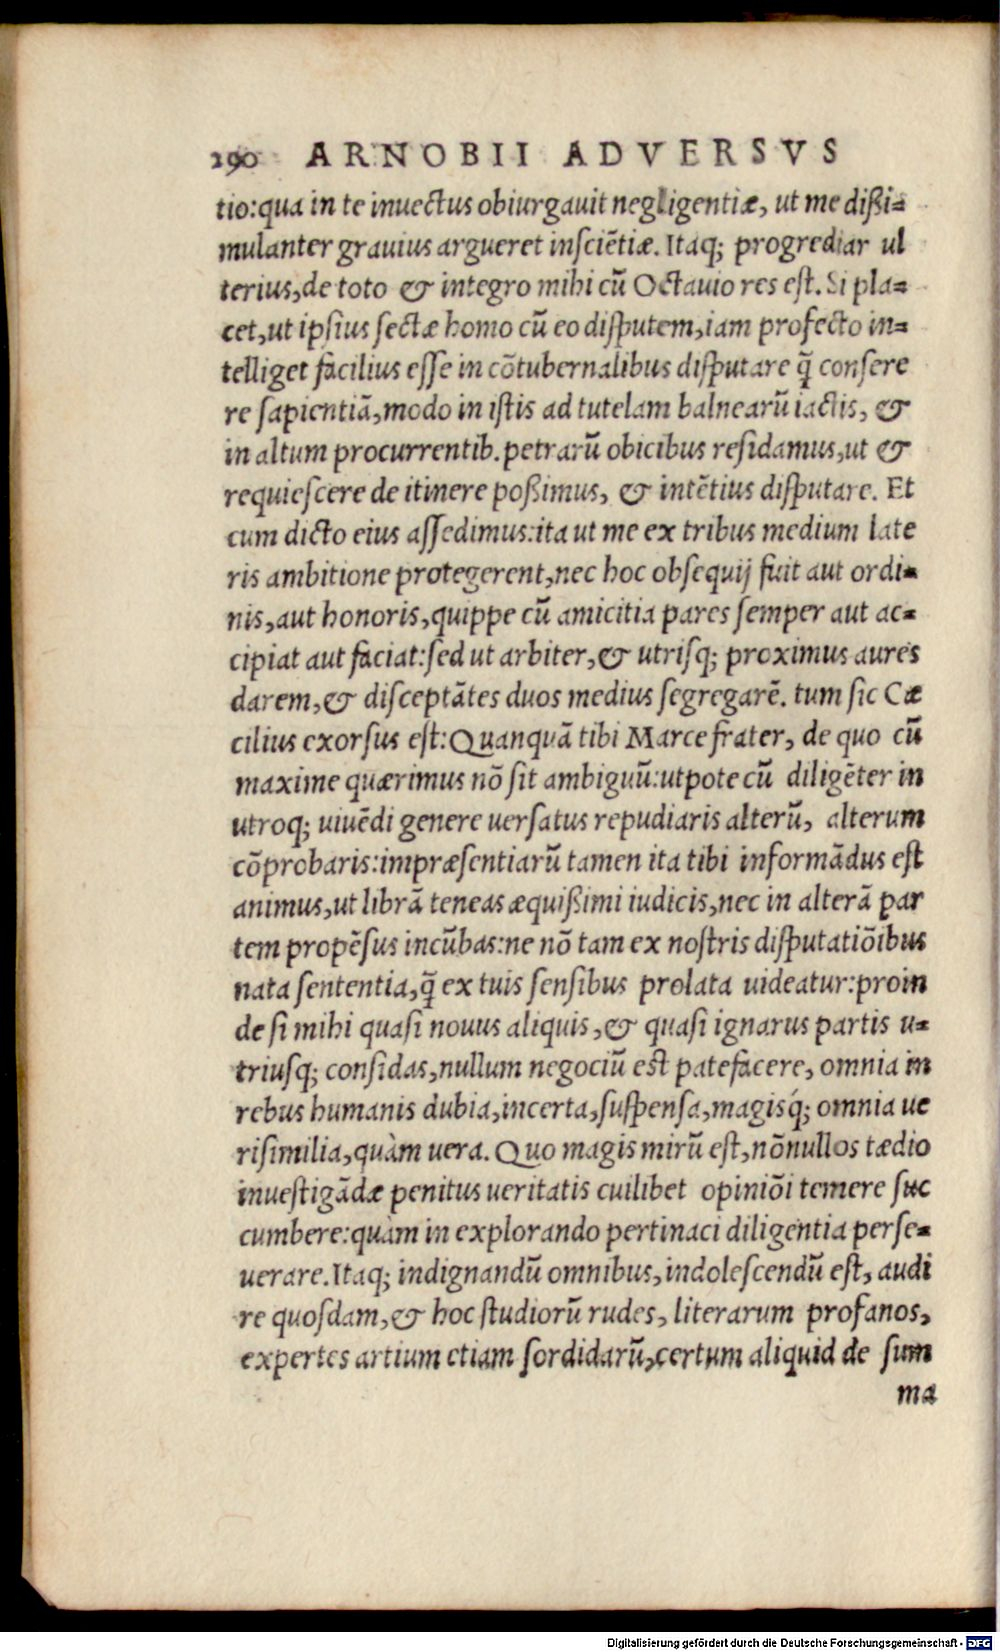 290 ARNOBII ADVERSVS
tio:qua in te inuectus obiurgauit negligentiæ, ut me dißi-
mulanter grauius argueret insciẽtiæ. Itaq; progrediar ul
terius,de toto & integro mihi cũ Octauio res est. Si pla-
cet,ut ipsius sectæ homo cũ eo disputem,iam profecto in-
telliget facilius esse in cõtubernalibus disputare q̃ consere
re sapientiã,modo in istis ad tutelam balnearũ iactis, &
in altum procurrentib. petrarũ obicibus residamus,ut &
requiescere de itinere poßimus, & intẽtius disputare. Et
cum dicto eius assedimus:ita ut me ex tribus medium late
ris ambitione protegerent,nec hoc obsequij fuit aut ordi-
nis,aut honoris,quippe cũ amicitia pares semper aut ac-
cipiat aut faciat:sed ut arbiter,& utrisq; proximus aures
darem,& disceptãtes duos medius segregarẽ. tum sic Cæ
cilius exorsus est:Quanquã tibi Marce frater, de quo cũ
maxime quærimus nõ sit ambiguũ:utpote cũ diligẽter in
utroq; uiuẽdi genere uersatus repudiaris alterũ, alterum
cõprobaris:impræsentiarũ tamen ita tibi informãdus est
animus,ut librã teneas æquißimi iudicis,nec in alterã par
tem propẽsus incũbas:ne nõ tam ex nostris disputatiõibus
nata sententia,q̃ ex tuis sensibus prolata uideatur:proin
de si mihi quasi nouus aliquis,& quasi ignarus partis u-
triusq; considas,nullum negociũ est patefacere, omnia in
rebus humanis dubia,incerta,suspensa,magisq́; omnia ue
risimilia,quàm uera. Quo magis mirũ est,nõnullos tædio
inuestigãdæ penitus ueritatis cuilibet opiniõi temere suc
cumbere:quàm in explorando pertinaci diligentia perse-
uerare. Itaq; indignandũ omnibus,indolescendũ est, audi
re quosdam,& hoc studiorũ rudes, literarum profanos,
expertes artium etiam sordidarũ,certum aliquid de sum
ma
Digitalisierung gefördert durch die Deutsche Forschungsgemeinschaft - DFG